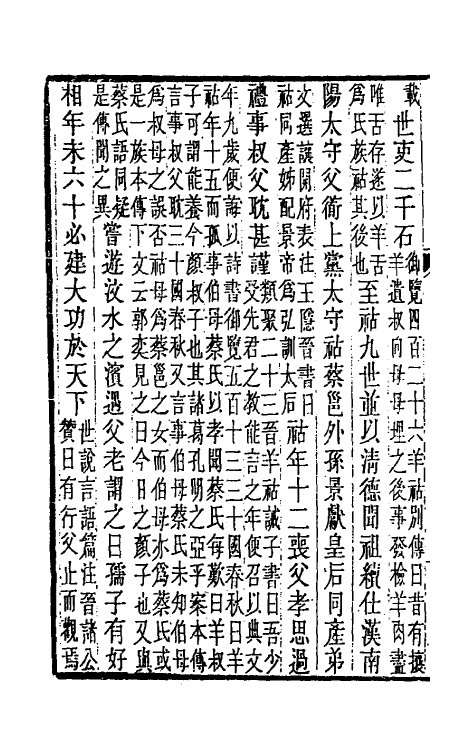 載世吏二千石御覽四百二十六羊祜別傳曰昔有攘
羊遺叔向母母埋之後事發檢羊肉盡
唯舌存遂以羊舌
爲氏族祜其後也至祜九世並以清德聞祖續仕漢南
陽太守父衜上黨太守祜蔡邕外孫景獻皇后同產弟
文選讓開府表注王隱晉書曰
祜同產姊配景帝爲弘訓太后祜年十二喪父孝思過
禮事叔父耽甚謹類聚二十三晉羊祜誡子書曰吾少
受先君之教能言之年便召以典文
年九歲便誨以詩書御覽五百十三三十國春秋曰羊
祜年十五而孤事伯母蔡氏以孝聞蔡氏每歎曰羊叔
子可謂能養今顏叔子也其諸葛孔明之亞乎案本傳
言事叔父耽三十國春秋又言事伯母蔡氏未知伯母
爲叔母之誤否祜母爲蔡邕之女而伯母亦爲蔡氏或
是一族本傳下文云郭奕見之曰今日之顏子也又與
蔡氏語同疑
是傳聞之異嘗遊汶水之濱遇父老謂之曰孺子有好
相年未六十必建大功於天下世說言語篇注晉諸公
贊曰有行父止而觀焉